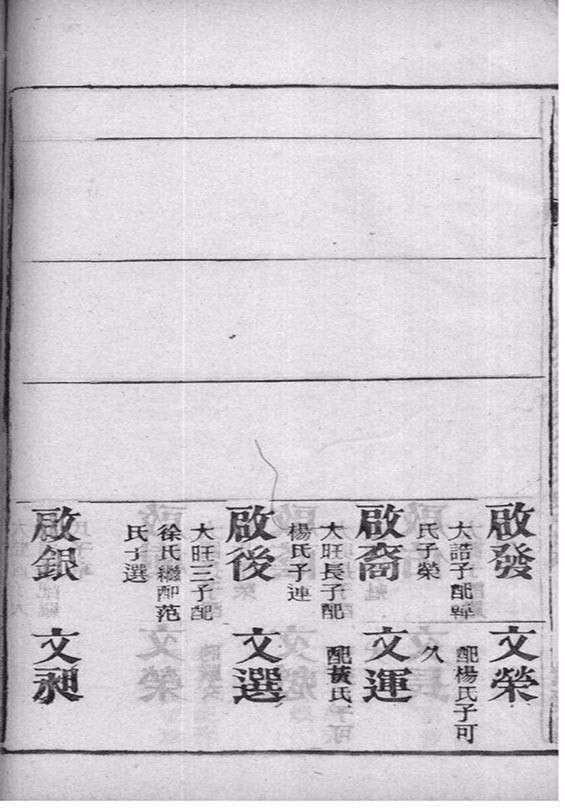 啟發
大誥子配韓
氏子榮
啟裔
大旺長子配
楊氏子連
啟後
大旺三子配
徐氏繼配范
氏子選
啟銀
文榮
配楊氏子可
久
文運
配黃氏
文選
文昶